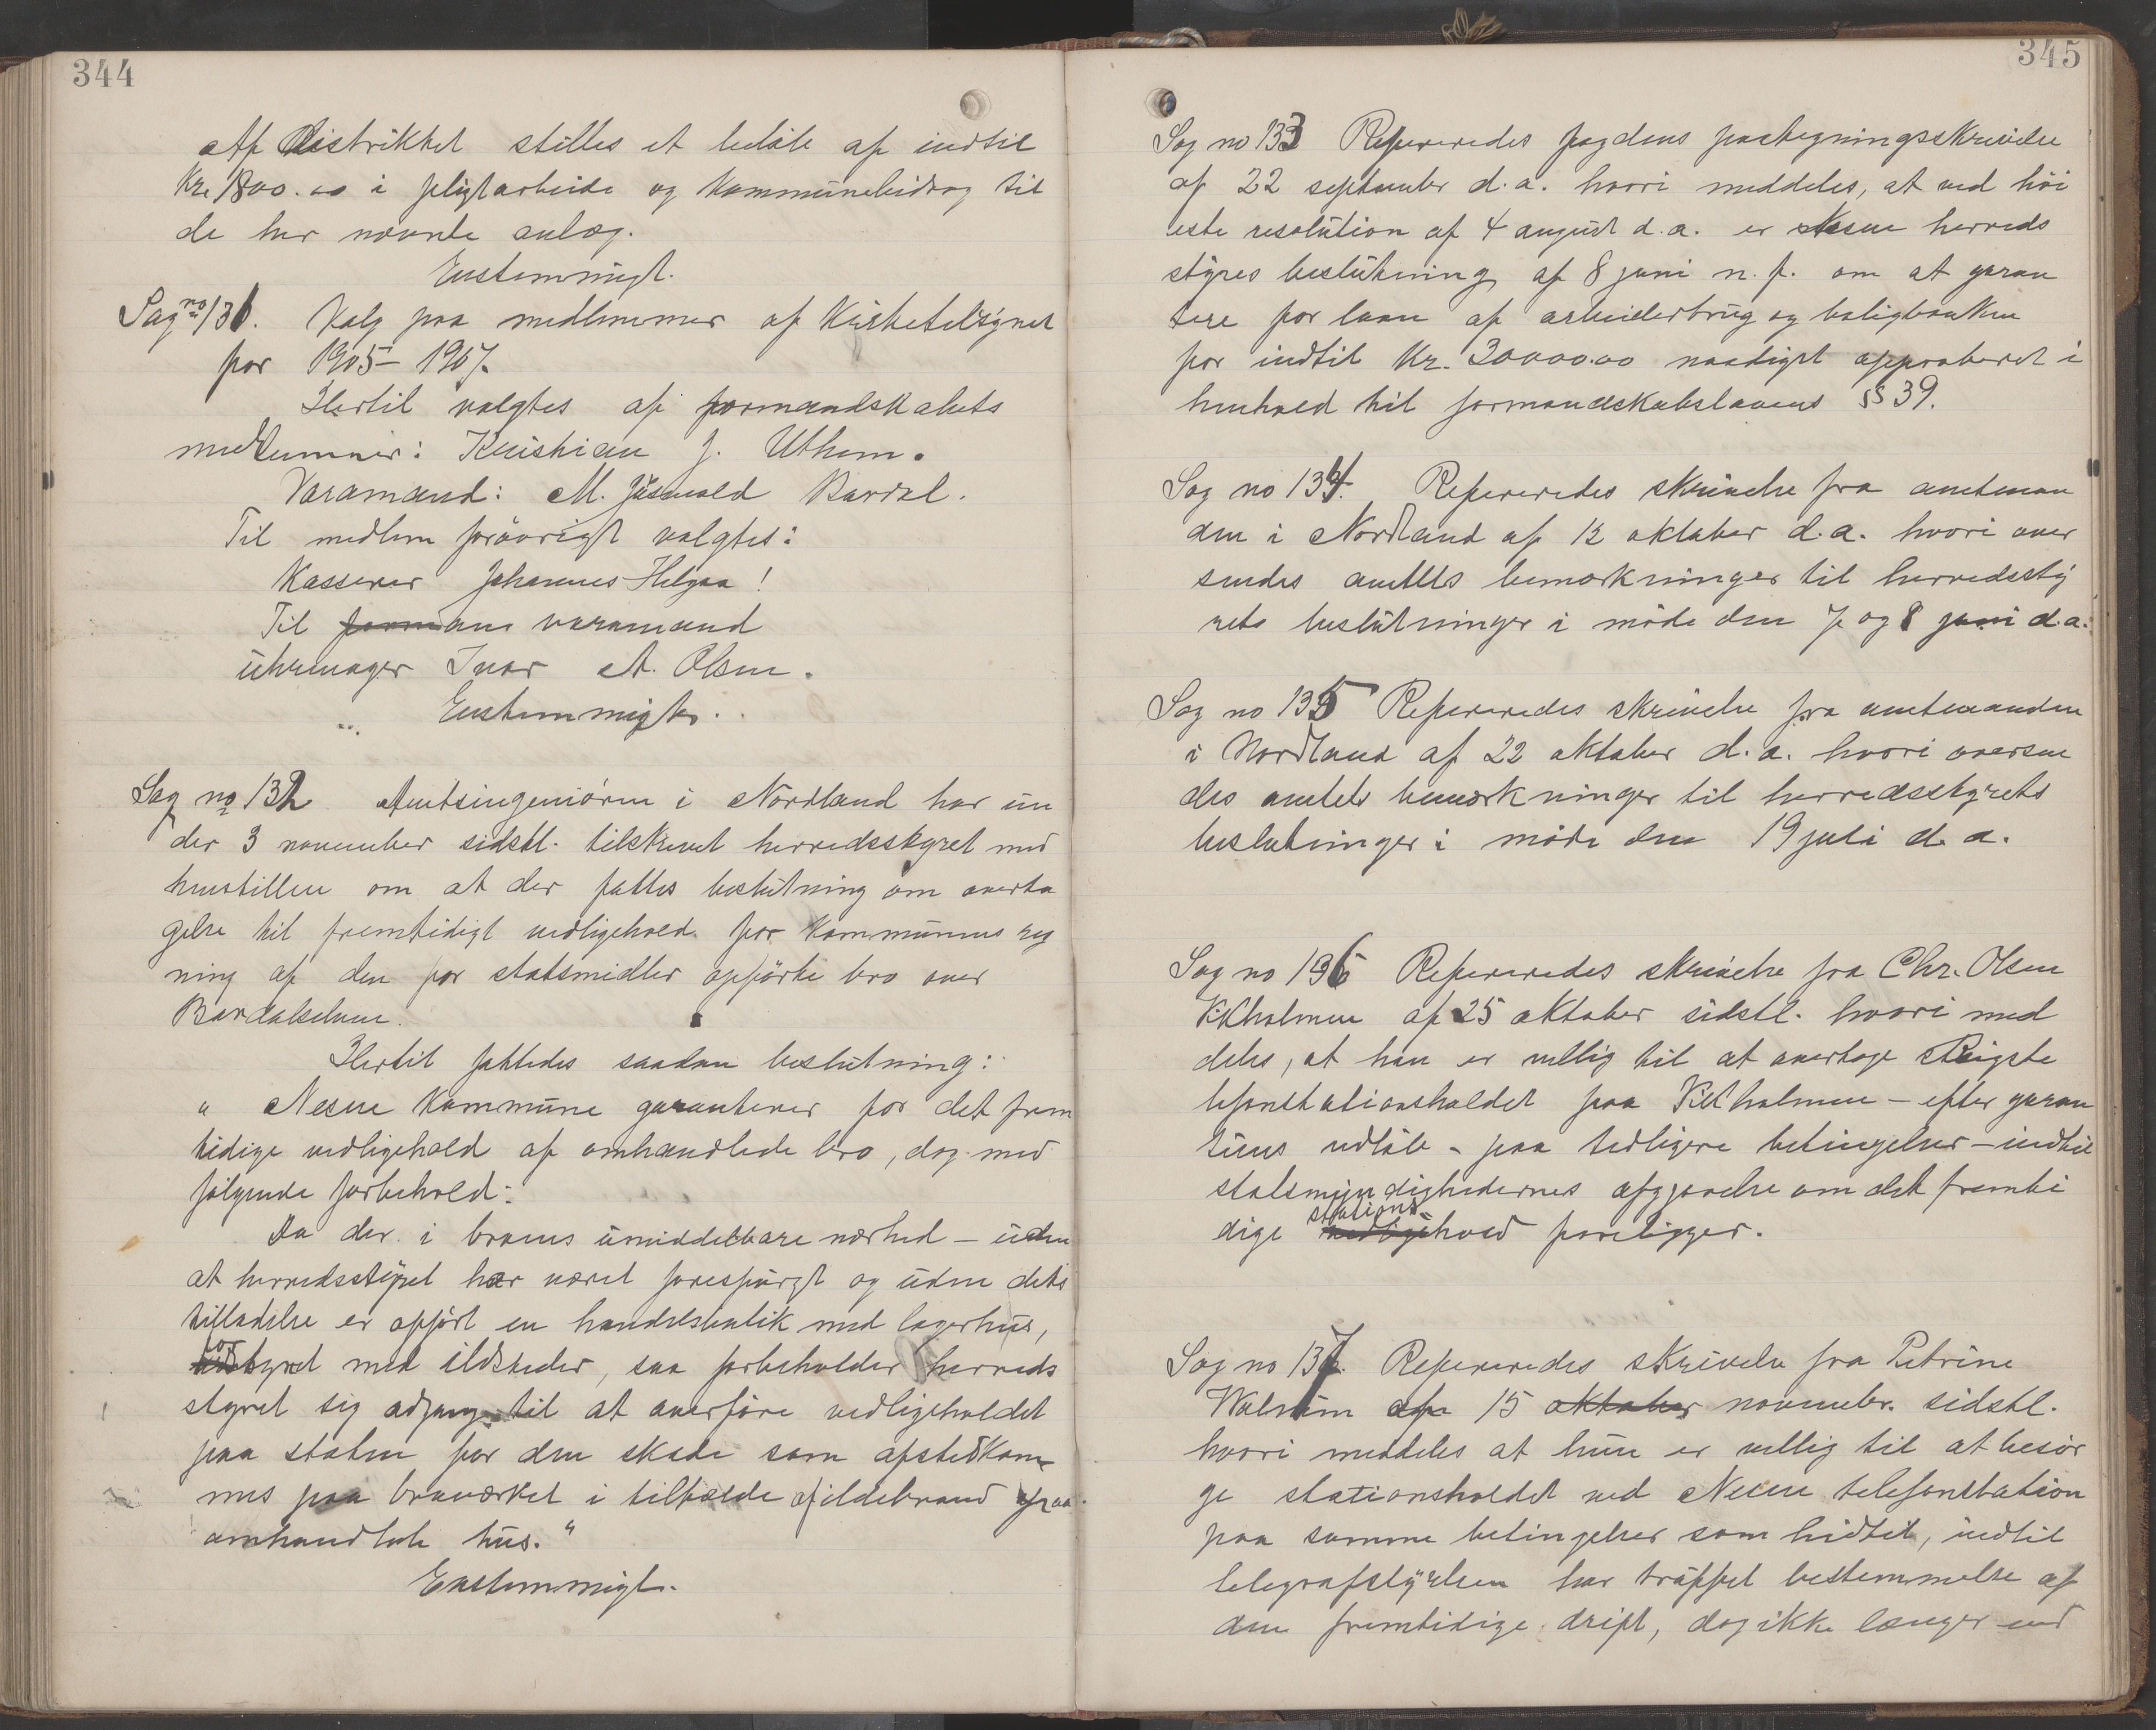 344
Af Distriktet stilles et beløb af indtil
Kr. 1800.00 i pligtarbeide og kommunebidrag til
de her nævnte anlæg.
Enstemmigt.
Sag no 131. Valg paa medlemmer af
for 1905–1907.
Hertil valgtes af formandskabets
medlemmer: Kristian J. Uthem.
Varamand: M. Jüswold Bardal.
Til medlem forøvrigt valgtes:
Kasserer Johannes Helgaa!
Til formans varamand
uhrmager Ivar A. Olsen.
Enstemmigt.
Sag no 132 Amtsingeniøren i Nordland har un
der 3 november sidstl. tilskrevet herredsstyret med
henstillen om at der fattes beslutning om overta
gelse til fremtidigt vedligehold for kommunens reg
ning af den for statsmidler opførte bro over
Bardalselven.
Hertil fattedes saadan beslutning:
" Nesne kommune garanterer for det frem
tidige vedligehold af omhandlede bro, dog med
følgende forbehold:
Da der i broens umiddelbare nærhed – uden
at herredsstyret har været forespurgt og uden dets
tilladelse er opført en handelsbutik med lagerhus,
forstyret med ildsteder, saa forbeholder herreds
styret sig adgang til at overføre vedligeholdet
paa staten for den skade som afstedkom
mes paa broværket i tilfælde af ildebrand paa
omhandlede hus."
Enstemmigt.
345
Sag no 133 Refereredes fogdens paategningsskrivelse
af 22 september d.a. hvori meddeles, at ved høi
este resolution af 4 august d.a. er Nesne herreds
styres beslutning af 8 juni n. f. om at garan
tere for laan af arbeiderbrug og boligbanken
for indtil Kr. 30000.00 naadigst approberet i
henhold til formandskabslovens §§ 39.
Sag no 134. Refereredes skrivelse fra amtman
den i Nordland af 12 oktober d.a. hvori over
sendes amtets bemærkninger til herredssty
rets beslutninger i møde den 7 og 8 juni d.a.
Sag no 135 Refereredes skrivelse fra amtmanden
i Nordland af 22 oktober d.a. hvori oversen
des amtets bemærkninger til herredsstyrets
beslutninger i møde den 19 juli d.a.
Sag no 136 Refereredes skrivelse fra Chr. Olsen
Kikholmen af 25 oktober sidstl. hvori med
deles, at han er villig til at overtage Rigste
lefonstationsholdet paa Kikholmen – efter garan
tiens udløb – paa tidligere betingelser – indtil
statsmyndighedernes afgjørelse om det fremti
dige stationshold foreligger.
Sag no 137. Refereredes skrivelse fra Petrine
Walnum af 15 oktober november sidstl.
hvori meddeles at hun er villig til at besør
ge stationsholdet ved Nesne telefonstation
paa samme betingelser som hidtil, indtil
telegrafstyrelsen har truffet bestemmelse af
den fremtidige drift, dog ikke længer end